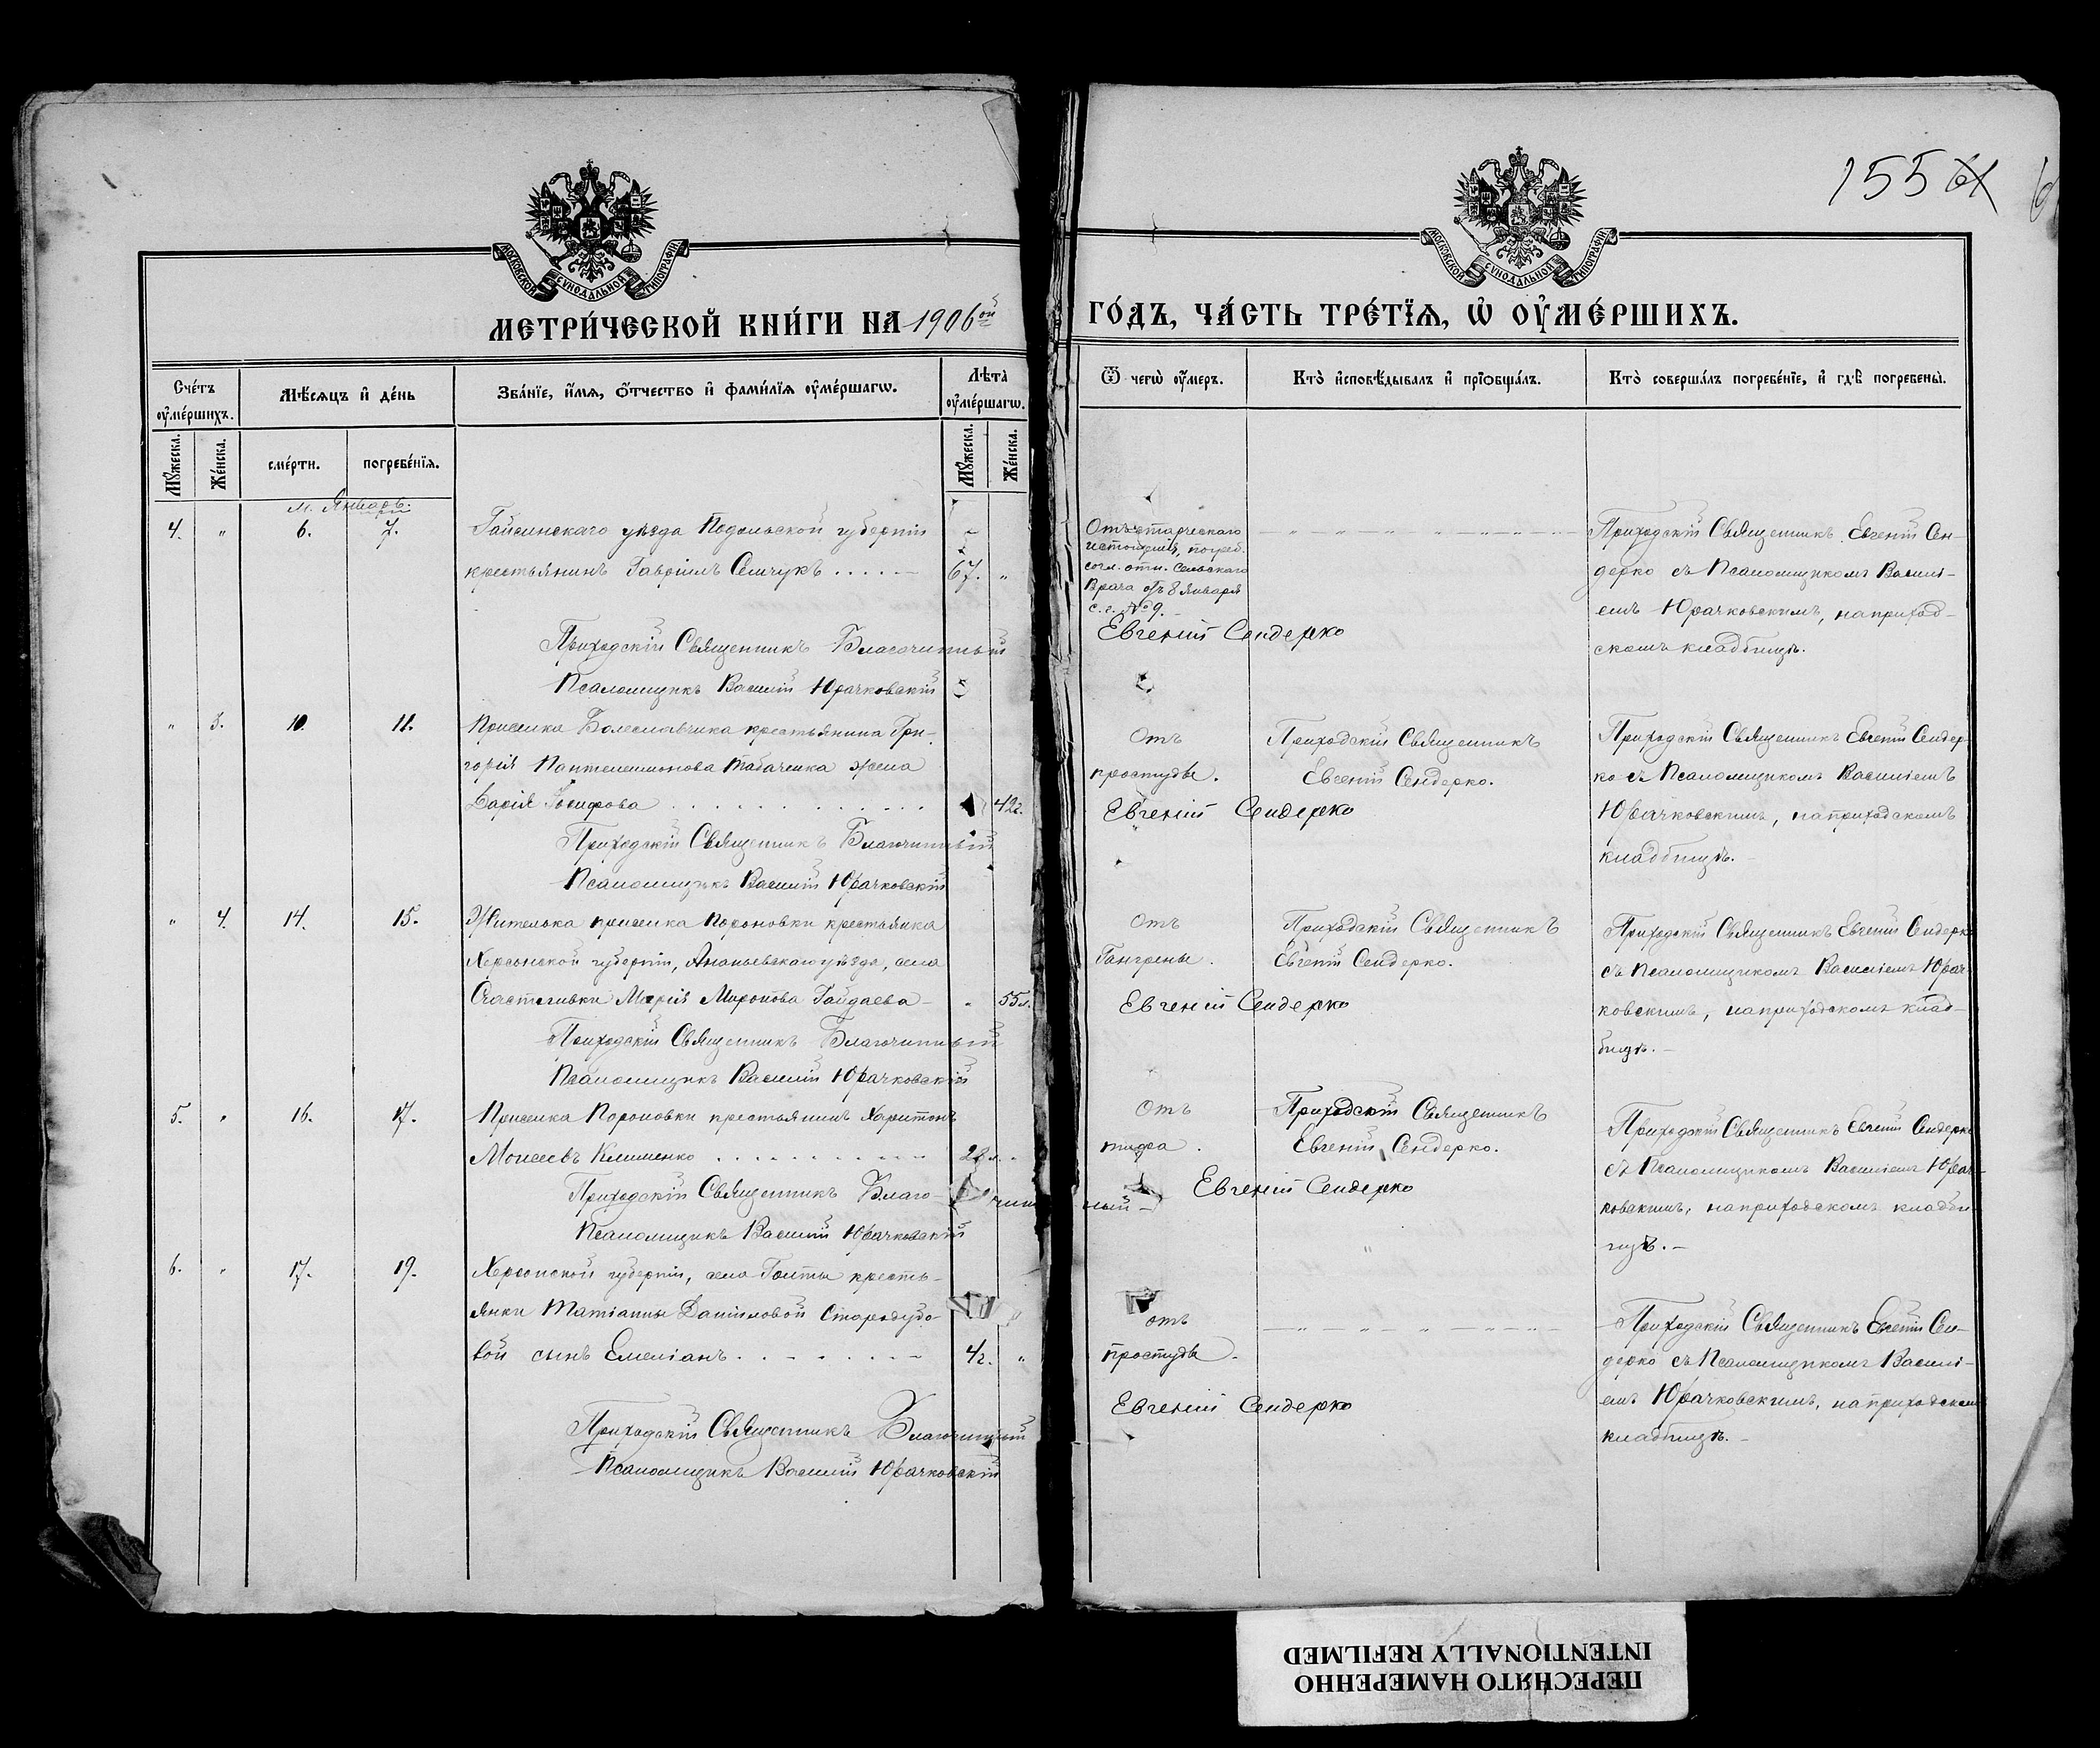 155 61
МОСКОВСКОЙ СѴНОДАЛЬНОЙ ТИПОГРАФІИ
МОСКОВСКОЙ СѴНОДАЛЬНОЙ ТИПОГРАФІИ
МЕТРИ́ЧЕСКОЙ КНИ́ГИ НА 1906ой
ГО́ДЪ, ЧА́СТЬ ТРЕ́ТЇѦ, Ѡ҆ ОУ҆МЕ́РШИХЪ.
Сче́тъ оу҆ме́ршихъ.
Мѣ́сѧцъ и҆ де́нь
Зва́нїе, и҆́мѧ, ѻ҆́тчество и҆ фами́лїѧ оу҆ме́ршагѡ.
Лѣ́та оу҆ме́ршагѡ.
Ѿ чегѡ̀ оу҆́меръ.
Кто̀ и҆сповѣ́дывалъ и҆ прїѡбща́лъ.
Кто̀ соверша́лъ погребе́нїе, и҆ гдѣ̀ погребены̀.
Мꙋ́жеска.
Же́нска.
сме́рти.
погребе́нїѧ.
Мꙋ́жеска.
Же́нска.
м. Январь.
4. " 6. 7.
Гайсинскаго уѣзда Подольской губерніи
крестьянинъ Гавріилъ Семчукъ 67. "
Приходскій Священникъ Благочинный
Псаломщикъ Василій Юрачковскій
Отъ старческаго
истощенія, погреб.
согл. отн. Сельскаго
Врача отъ 8 Января
с. г. № 9.
Евгеній Сендерко
Приходскій Священникъ Евгеній Сен-
дерко съ Псаломщикомъ Василі-
емъ Юрачковскимъ, на приход-
скомъ кладбищѣ.
" 3. 10. 11.
Приселка Болеславчика крестьянина Гри-
горія Пантелеимонова Табаченка жена
Дарія Іосифова 42г.
Приходскій Священникъ Благочинный
Псаломщикъ Василій Юрачковскій
Отъ
простуды.
Приходскій Священникъ
Евгеній Сендерко.
Евгеній Сендерко
Приходскій Священникъ Евгеній Сендер-
ко съ Псаломщикомъ Василіемъ
Юрачковскимъ, на приходскомъ
кладбищѣ.
" 4. 14. 15.
Жителька приселка Пороновки крестьянка
Херсонской губерніи, Ананьевскаго уѣзда, села
Счастливки Марія Миронова Гайдаева - " 55л.
Приходскій Священникъ Благочинный
Псаломщикъ Василій Юрачковскій
Отъ
Гангрены.
Приходскій Священникъ
Евгеній Сендерко.
Евгеній Сендерко
Приходскій Священникъ Евгеній Сендерко
съ Псаломщикомъ Василіемъ Юрач-
ковскимъ, на приходскомъ клад-
бищѣ. -
5. " 16. 17.
Приселка Пороновки крестьянинъ Харитонъ
Моисеевъ Клименко 28 л. "
Приходскій Священникъ Благочинный
Псаломщикъ Василій Юрачковскій
Отъ
тифа.
Приходскій Священникъ
Евгеній Сендерко.
Евгеній Сендерко
Приходскій Священникъ Евгеній Сендерко
съ Псаломщикомъ Василіемъ Юрач-
ковскимъ, на приходскомъ кладби-
щѣ. -
6. " 17. 19.
Херсонской губерніи, села Голты кресть-
янки Татіаны Даниловой Стародубо-
вой сынъ Емеліанъ 4г. "
Приходскій Священникъ Благочинный
Псаломщикъ Василій Юрачковскій
отъ
простуды.
Евгеній Сендерко
Приходскій Священникъ Евгеній Сен-
дерко съ Псаломщикомъ Василі-
емъ Юрачковскимъ, на приходскомъ
кладбищѣ. -
ПЕРЕСНЯТО НАМЕРЕННО
INTENTIONALLY REFILMED